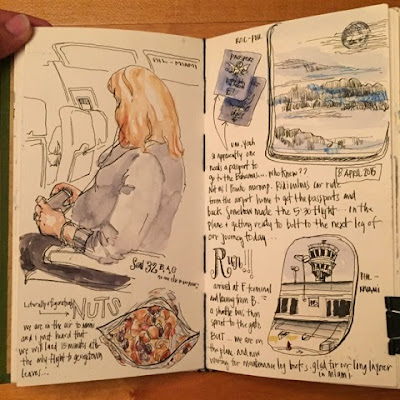 PHL - MIAMI
Seat 32, B, A, G
Literally & figuratively
NUTS
we are on the air to miami
and I just heard that
we will land 15 minutes after
the only flight to georgetown
leaves...
RDU - PHL
PASSPORT
8 APRIL 2015
um, yeah
so apparently one
needs a passport to
go to the Bahamas.... who knew??
Not us! Doubt, moving. Ridiculous car ride
from the airport home to get the passports and
back. Somehow made the 5:30 flight.... in the
plane & getting ready to bolt to the next leg of
our journey today...
RUN!!!
arrived at F terminal
a shuttle bus then
sprint to the gate
BUT... we are on
the plane and now
waiting for maintenance log but so glad for our long layover
in miami
PHL -
MIAMI